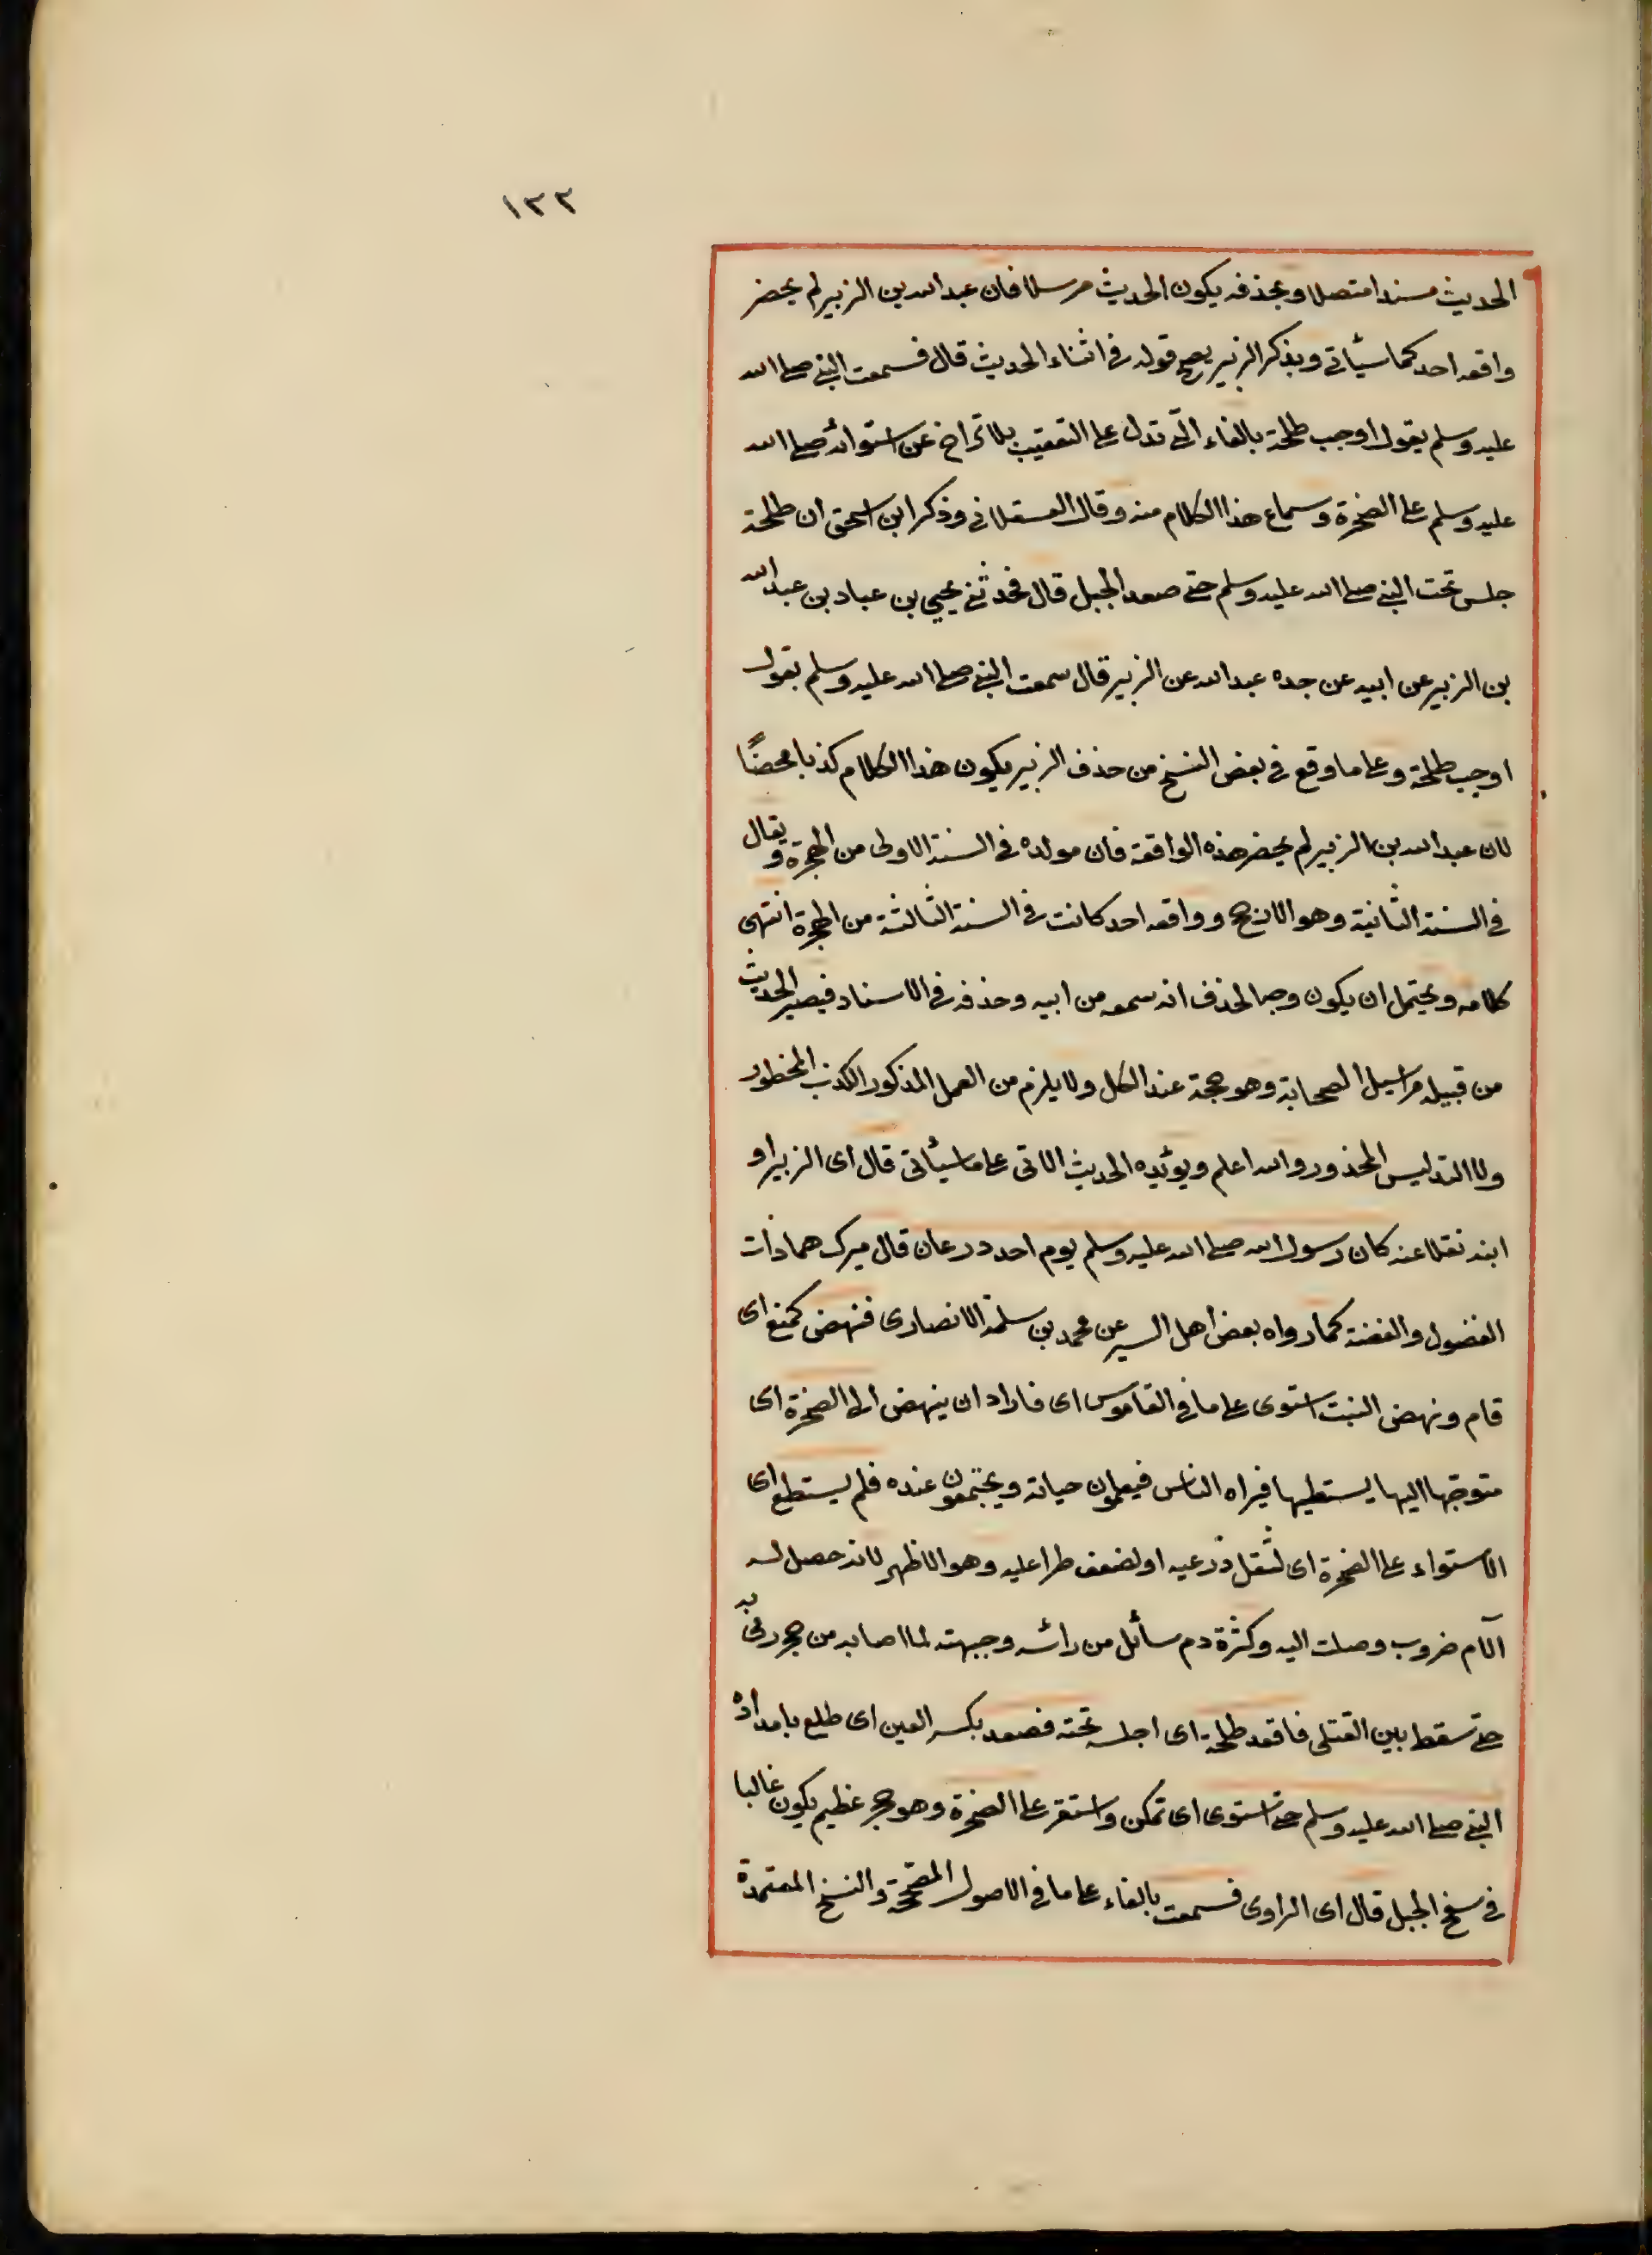 ١٣٢
الحديث مسندا متصلا وبحذفه يكون الحديث مرسلا فان عبدالله بن الزبير لم يحضر
واقعه احد كما سيأتى وبذكر الزبير يصح قوله فى اثناء الحديث قال فسمعت النبى صلى الله
عليه وسلم يقول اوجب طلحة بالفاء التى تدل على التعقيب بلا تراخ عن استوائه صلى الله
عليه وسلم على الصخرة وسماع هذا الكلام منه وقال العسقلانى وذكر ابن اسحق ان طلحة
جلس تحت النبى صلى الله عليه وسلم حتى صعد الجبل قال فحدثنى يحيى بن عباد بن عبدالله
بن الزبير عن ابيه عن جده عبدالله عن الزبير قال سمعت النبى صلى الله عليه وسلم يقول
اوجب طلحة وعلى ما وقع فى بعض النسخ من حذف الزبير يكون هذا الكلام كذبا محضًا
لان عبدالله بن الزبير لم يحضر هذه الواقعة فان مولده فى السنة الاولى من الهجرة ويقال
فى السنة الثانية وهو الارجح وواقعه احد كانت فى السنة الثالثة من الهجرة انتهى
كلامه ويحتمل ان يكون وجها لحذف انه سمعه من ابيه وحذفه فى الاسناد فيصير الحديث
من قبيل مراسيل الصحابة وهو حجة عند الكل ولا يلزم من العمل المذكور الكذب المحظور
ولا التدليس المحذور والله اعلم ويؤيده الحديث الاتى على ما سيأتى قال اى الزبير او
ابنه نقلا عنه كان رسول الله صلى الله عليه وسلم يوم احد درعان قال ميرك هما ذات
الفضول والفضة كما رواه بعض أهل السير عن محمد بن سلمة الانصارى فنهض كمنع اى
قام ونهض النبت استوى على ما فى القاموس اى فاراد ان ينهض الى الصخرة اى
متوجها اليها يستطيها فيراه الناس فيعلمون حياته ويجتمعون عنده فلم يستطع اى
الاستواء على الصخرة اى لثقل درعيه او لضعف طرا عليه وهو الاظهر لانه حصل له
آلام ضروب وصلت اليه وكثرة دم سائل من رأسه وجبهته لما اصابه من حجر رمى به
حتى سقط بين القتلى فاقعد طلحة اى اجلسه تحته فصعد بكسر العين اى طلع بامداده
النبى صلى الله عليه وسلم حتى استوى اى تمكن واستقر على الصخرة وهو حجر عظيم يكون غالبا
فى سفح الجبل قال اى الراوى فسمعت بالفاء على ما فى الاصول المصححة والنسخ المعتمدة